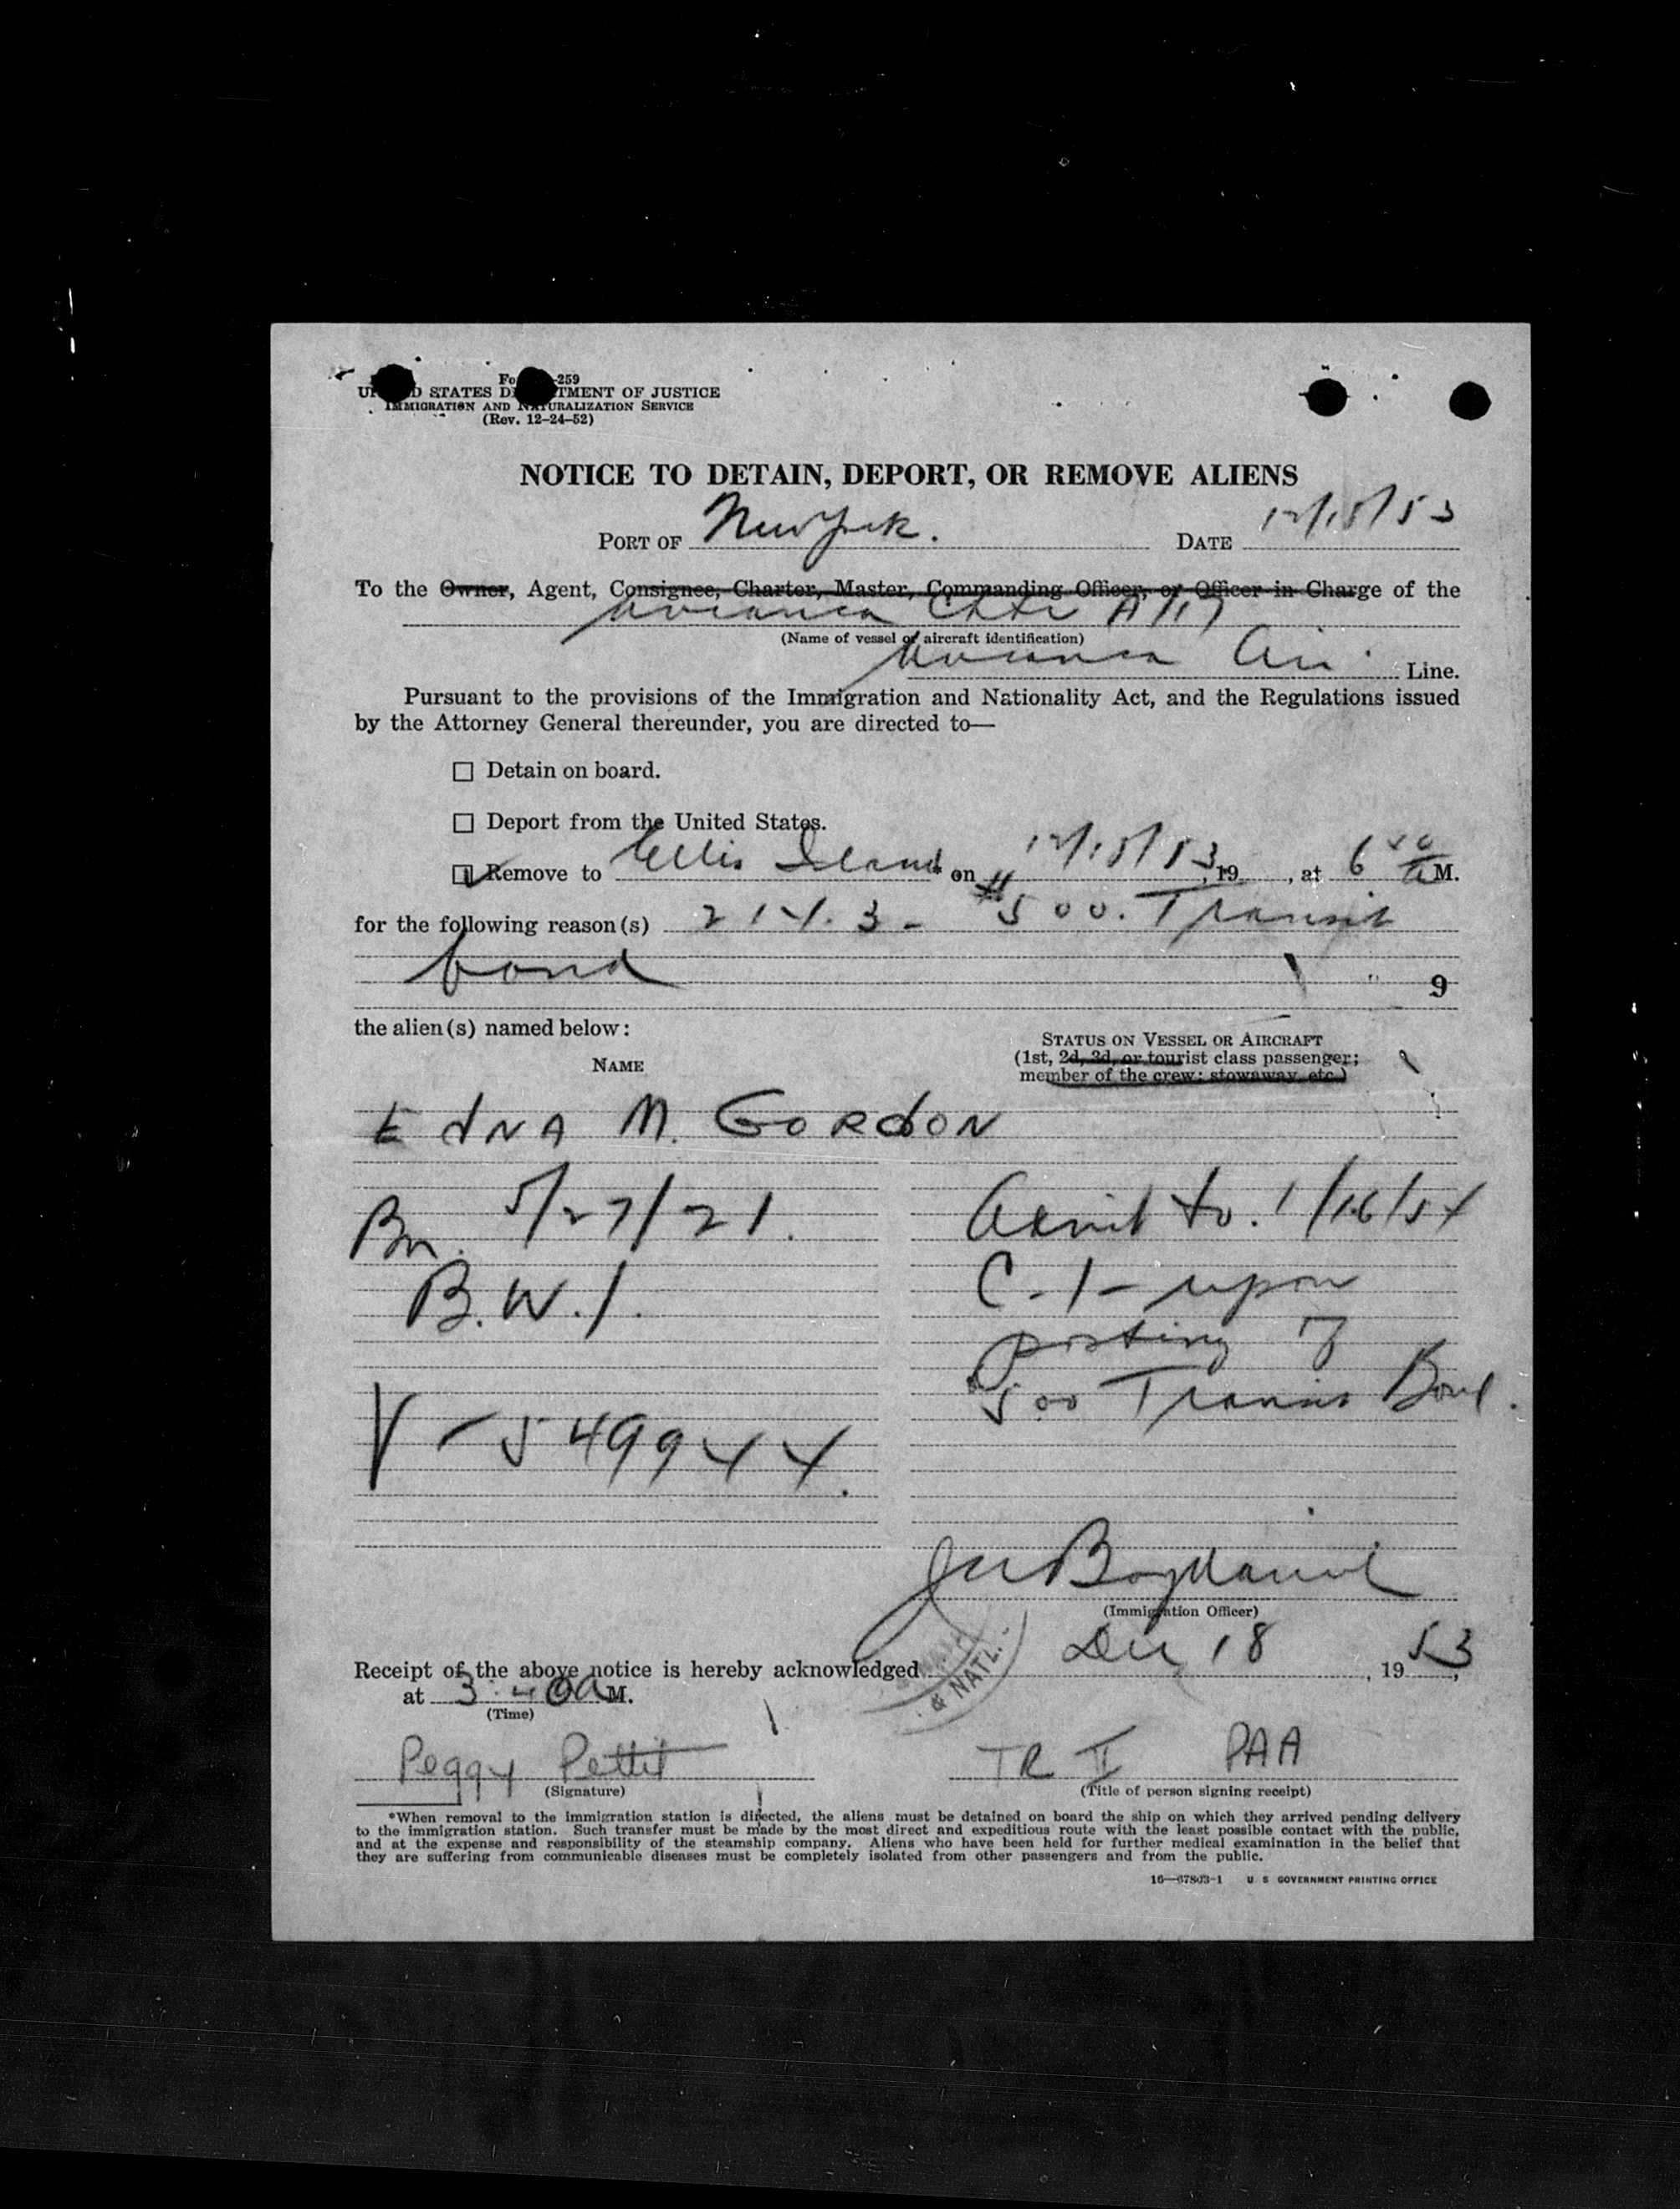 Fo -259
UNITED STATES DEPARTMENT OF JUSTICE
IMMIGRATION AND NATURALIZATION SERVICE
(Rev. 12-24-52)
NOTICE TO DETAIN, DEPORT, OR REMOVE ALIENS
PORT OF New York. DATE 12/18/53
To the Owner, Agent, Consignee, Charter, Master, Commanding Officer, or Officer in Charge of the
Avianca
(Name of vessel or aircraft identification)
Avianca Air Line.
Pursuant to the provisions of the Immigration and Nationality Act, and the Regulations issued
by the Attorney General thereunder, you are directed to—
Detain on board.
Deport from the United States.
Remove to Ellis Island* on 12/18/53, 19 , at 6 A M.
for the following reason(s) 214.3 - $500. Transit
bond
9
the alien(s) named below:
NAME
STATUS ON VESSEL OR AIRCRAFT
(1st, 2d, 3d, or tourist class passenger;
member of the crew; stowaway, etc.)
EDNA M. GORDON
Bn. 5/27/21.
B.W.I.
V-549944.
Admit to. 1/16/54
C-1- upon
posting of
$500 Transit Bond.
(Immigration Officer)
Receipt of the above notice is hereby acknowledged Dec 18, 1953,
at 3:40 A M.
(Time)
& NATL.
Peggy Pettit
(Signature)
TR II PAA
(Title of person signing receipt)
*When removal to the immigration station is directed, the aliens must be detained on board the ship on which they arrived pending delivery
to the immigration station. Such transfer must be made by the most direct and expeditious route with the least possible contact with the public,
and at the expense and responsibility of the steamship company. Aliens who have been held for further medical examination in the belief that
they are suffering from communicable diseases must be completely isolated from other passengers and from the public.
16—67803-1 U. S. GOVERNMENT PRINTING OFFICE